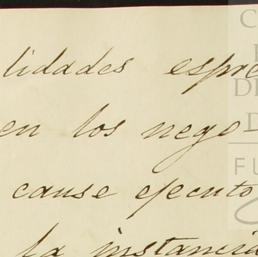 lidades espre
en los nego
cause ejecuto
la instancia